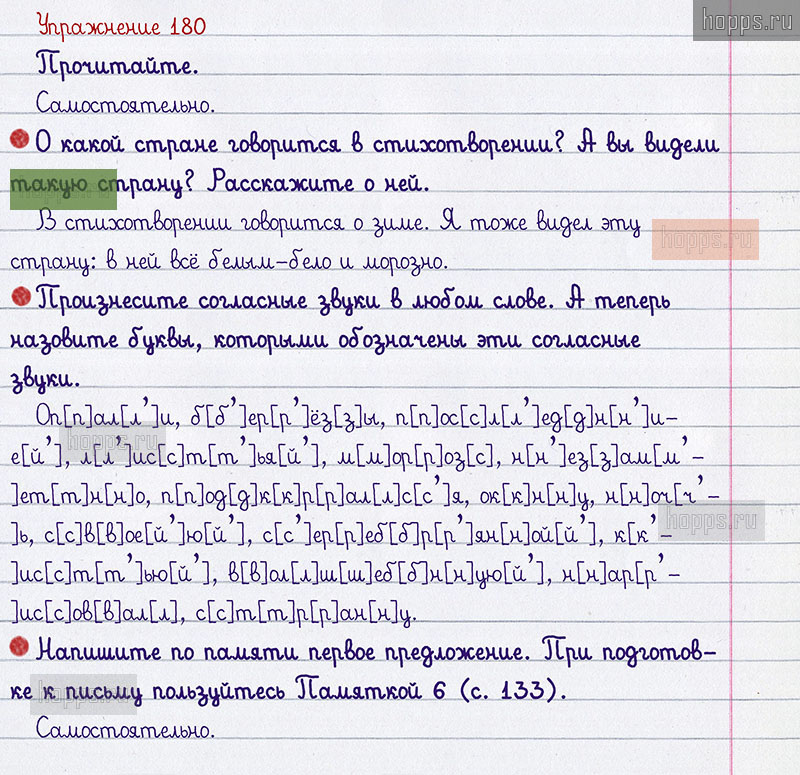 hopps.ru
Упражнение 180
Прочитайте.
Самостоятельно.
О какой стране говорится в стихотворении? А вы видели
такую страну? Расскажите о ней.
В стихотворении говорится о зиме. Я тоже видел эту
hopps.ru
страну: в ней всё белым-бело и морозно.
Произнесите согласные звуки в любом слове. А теперь
назовите буквы, которыми обозначены эти согласные
звуки.
Оп[п]ал[л’]и, б[б’]ер[р’]ёз[з]ы, п[п]ос[с]л[л’]ед[д]н[н’]и-
hopps.ru
е[й’], л[л’]ис[с]т[т’]ья[й’], м[м]ор[р]оз[с], н[н’]ез[з]ам[м’-
]ет[т]н[н]о, п[п]од[д]к[к]р[р]ал[л]с[с’]я, ок[к]н[н]у, н[н]оч[ч’-
hopps.ru
]ь, с[с]в[в]ое[й’]ю[й’], с[с’]ер[р]еб[б]р[р’]ян[н]ой[й’], к[к’-
]ис[с]т[т’]ью[й’], в[в]ол[л]ш[ш]еб[б]н[н]ую[й’], н[н]ар[р’-
]ис[с]ов[в]ал[л], с[с]т[т]р[р]ан[н]у.
Напишите по памяти первое предложение. При подготов-
ке к письму пользуйтесь Памяткой 6 (с. 133).
hopps.ru
Самостоятельно.